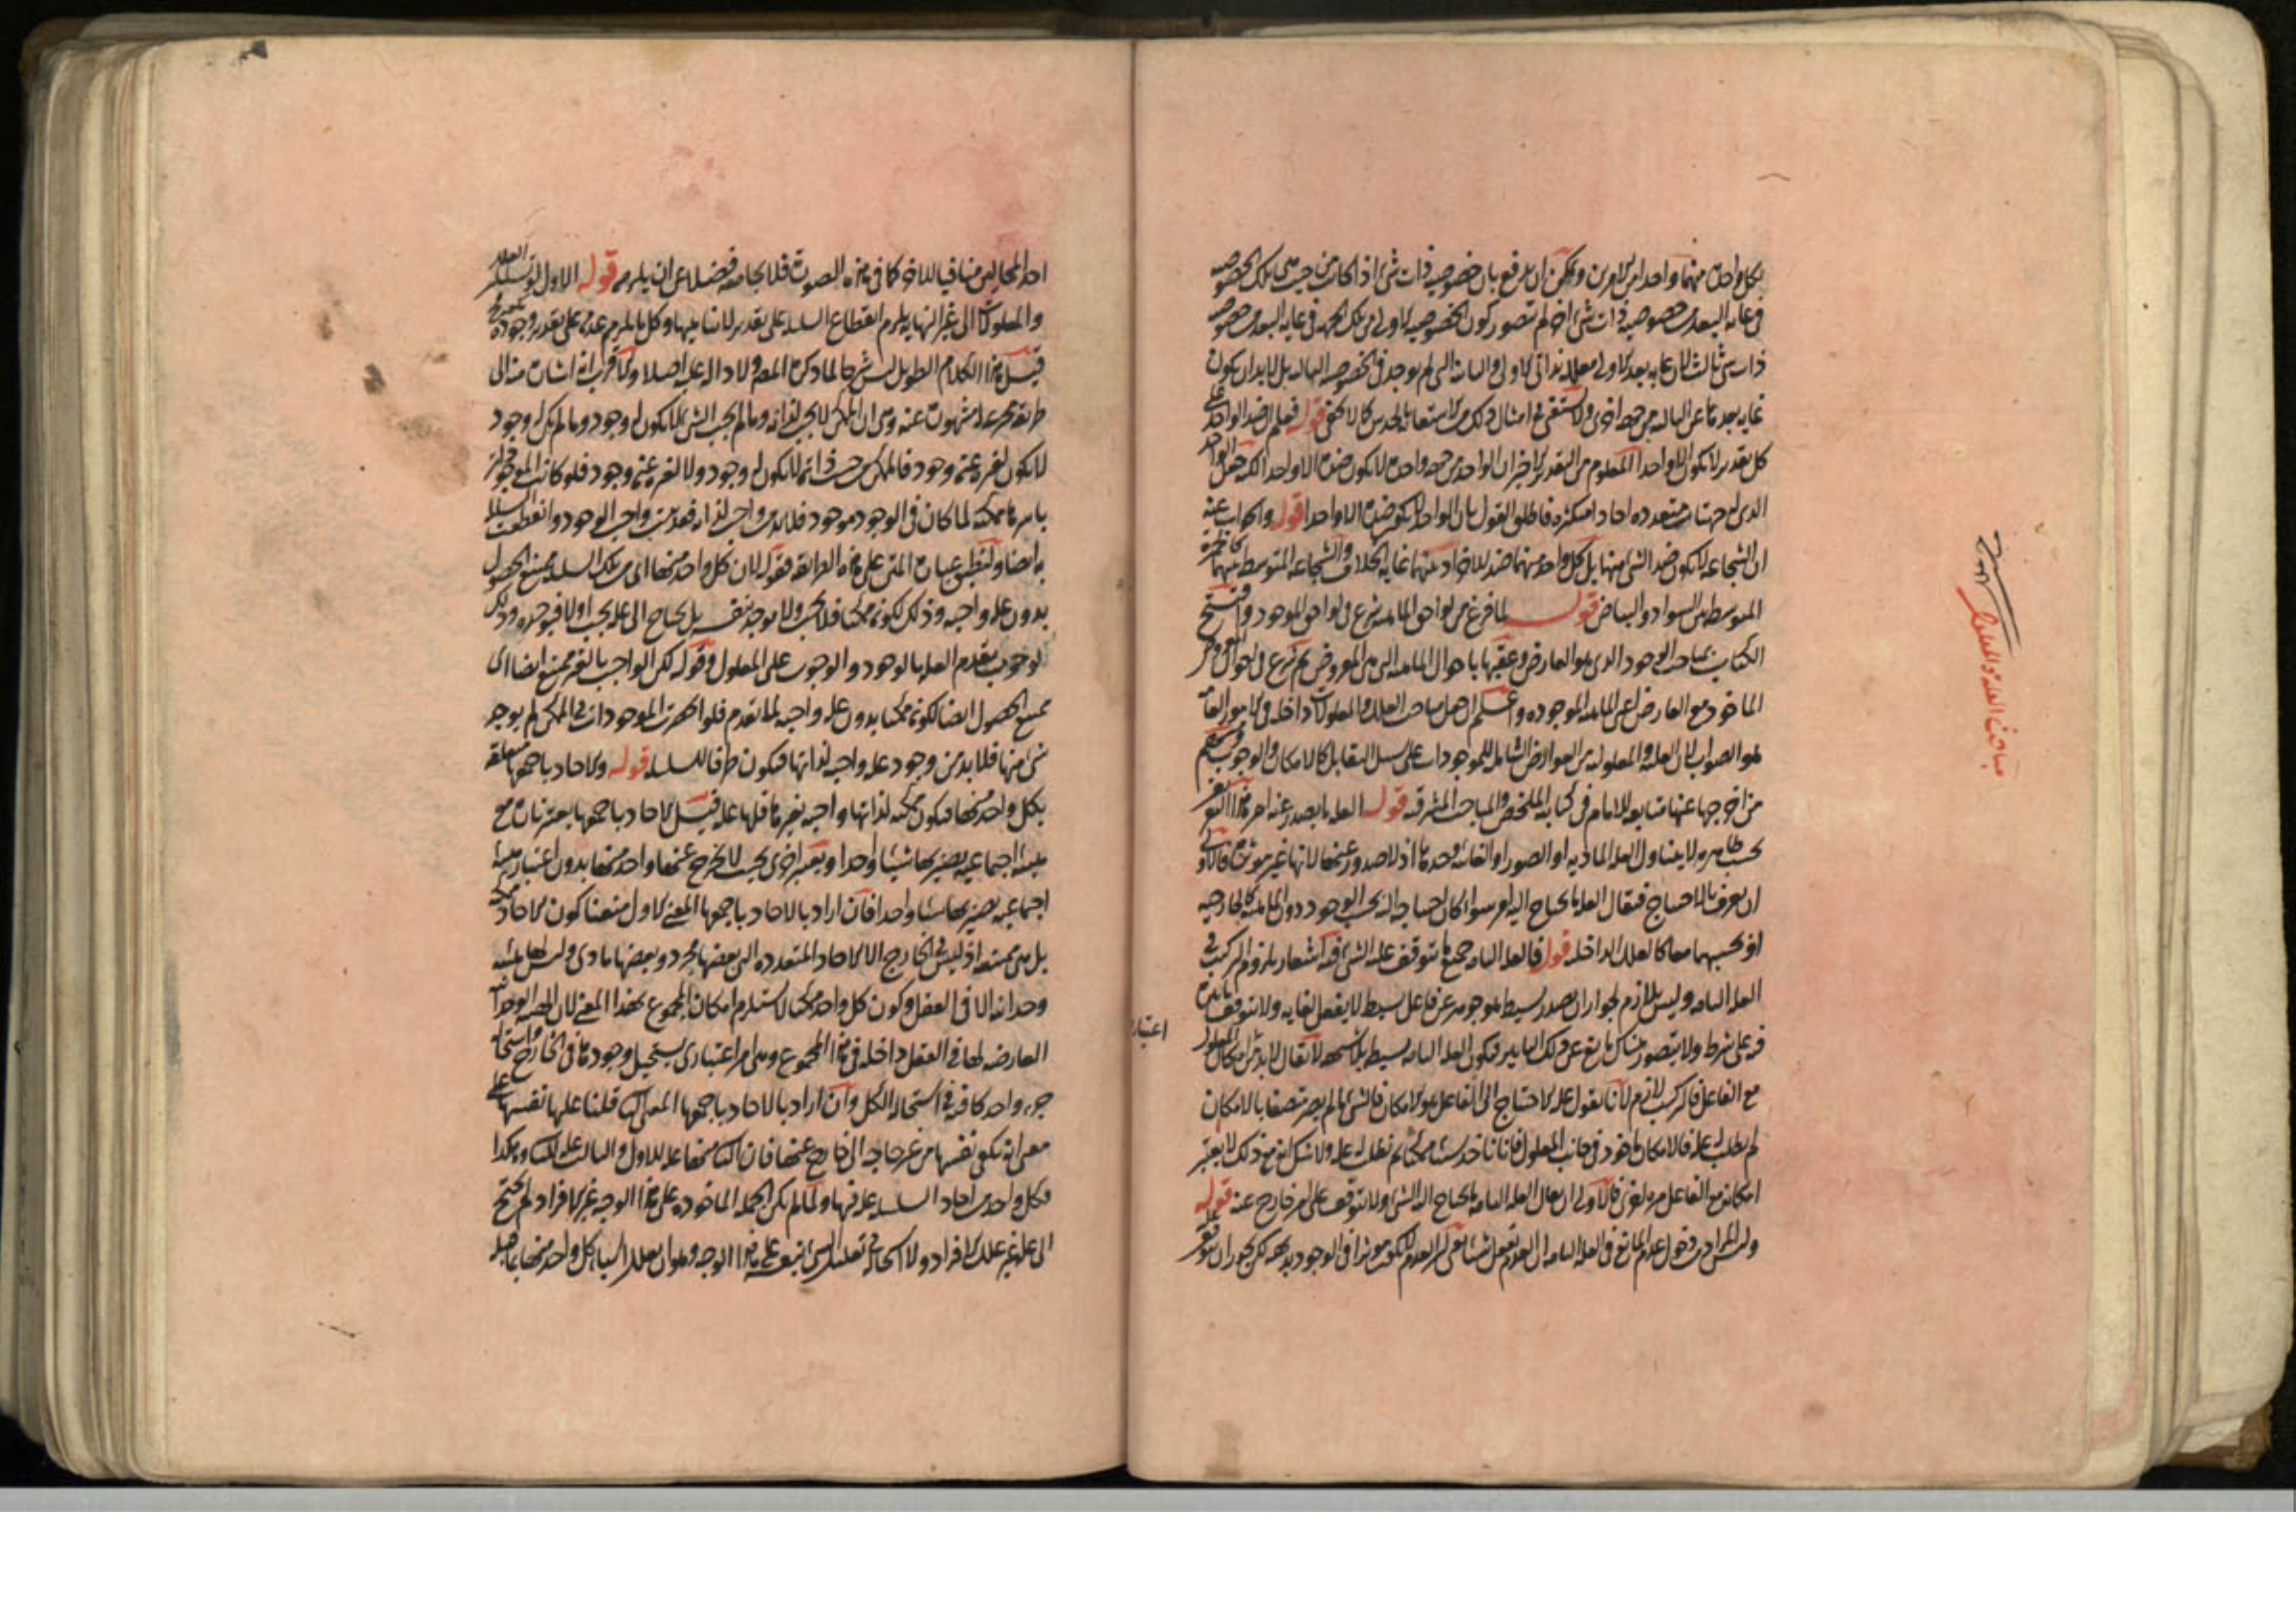 لكل واحد منهما واحد من الامرين ويمكن ان يدفع بان خصوصيه ذات شئ اذا كانت من حيث هى تلك الخصوصيه
فى غايه البعد من خصوصيه ذات شئ اخر لم يتصور كون الخصوصيه الاولى من تلك الجهه فى غايه البعد من خصوصيه
ذات شئ ثالث لان غايه بعد الاولى معلله بذاتى الاولى والثانيه التى لم يوجد فى الخصوصيه الثالثه بل لا بد ان يكون
غايه بعدها عن الثالثه من جهه اخرى ولا يستغنى فى امثال ذلك من الاستعانه بالحدس كما لا يخفى قوله فعلم ان ضد الواحد على
كل تقدير لا يكون الا واحدا المعلوم من التقدير الاخير ان الواحد من جهه واحده لا يكون ضده الا واحدا لكنه جعل الواحد
الذى له جهات متعدده احادا متكثره فاطلق القول بان الواحد لا يكون ضده الا واحدا قوله والجواب عنه
ان الشجاعه لا تكون ضد الشئ منهما بل كل واحد منهما ضد للاخر اذ بينهما غايه الخلاف والشجاعه المتوسطه بينهما كالحمره
المتوسطه بين السواد والبياض قوله لما فرغ من لواحق الماهيه شرع فى لواحق الموجود وافتتح
الكتاب بمباحث الوجود الذى هو العارض وعقبها باحوال الماهيه التى هى المعروض ثم شرع فى احوال الموجود
الماخوذ مع العارض اعنى الماهيه الموجوده واعلم ان جعل مباحث العلل والمعلولات داخله فى الامور العامه
هو الصواب لان العليه والمعلوليه من العوارض الشامله للموجودات على سبيل التقابل كالامكان والوجوب ومنهم
من اخرجها عنها متابعه للامام فى كتابيه الملخص والمباحث المشرقيه قوله العله ما يصدر عنه امر هذا التعريف
بحسب ظاهره لا يتناول العله الماديه او الصوريه او الغائيه وحدها اذ لا صدور عنها لانها غير موثره فالاولى
ان يعرف بالاحتياج فيقال العله ما يحتاج اليه امر سواء كان احتياجه اليه بحسب الوجود دون الماهيه كالخارجيه
او بحسبهما معا كالعلل الداخله قوله فالعله التامه جميع ما يتوقف عليه الشئ فيه اشعار بلزوم التركيب فى
العله التامه وليس بلازم لجواز ان يصدر بسيط موجود عن فاعل بسيط لا يفعل لغايه ولا يتوقف تاثيره
فيه على شرط ولا يتصور هناك مانع عن ذلك التاثير فيكون العله التامه بسيطه بلا شبهه لا يقال لا بد من امكان المعلول
مع الفاعل فالتركيب لازم لانا نقول عله الاحتياج الى الفاعل هو الامكان فالشئ ما لم يعتبر متصفا بالامكان
لم يطلب له عله فالامكان ماخوذ فى جانب المعلول فانا ناخذ شيئا ممكنا ثم نطلب له عله ولا شك انه مع ذلك لا يعتبر
امكانه مع الفاعل مره اخرى فالاولى ان يقال العله التامه ما يحتاج اليه الشئ ولا يتوقف على امر خارج عنه قوله
وليس المراد من دخول عدم المانع فى العله التامه ان العدم يفعل شيئا يعنى ان العدم لا يكون موثرا فى الوجود بديهه لكن يجوز ان يتوقف
مباحث العله والمعلول
احد المحالين منافيا للاخر كما فى هذه الصوره فلا يجامعه فضلا عن ان يلزمه قوله الاول لو تسلسل العلل
والمعلولات الى غير النهايه يلزم انقطاع السلسله على تقدير لا تناهيها وكل ما يلزم عدمه على تقدير وجوده
قيل هذا الكلام الطويل ليس شرحا لما ذكره المص ولا دلاله عليه اصلا
طريقه مشهوره عنه وهى ان الممكن لا يجب لذاته وما لم يجب الشئ لا يكون له وجود وما لم يكن له وجود
لا يكون لغيره عنه وجود فالممكن من حيث ذاته لا يكون له وجود ولا لغيره عنه وجود فلو كانت الموجودات
باسرها ممكنه لما كان فى الوجود موجود فلا بد من واجب لذاته فقد ثبت واجب الوجود وانقطعت السلسله
به ايضا ولتطبيق عباره المتن على هذه الطريقه فقوله لان كل واحد منها اى من تلك السلسله يمتنع الحصول
بدون عله واجبه وذلك لكونه ممكنا فلا يجب ولا يوجد بنفسه بل يحتاج الى عله يجب اولا فيوجده وذلك
لوجوب تقدم العله بالوجود والوجوب على المعلول وقوله لكن الواجب بالغير ممتنع ايضا اى
يمتنع الحصول ايضا لكونه ممكنا بدون عله واجبه لما تقدم فلو انحصرت الموجودات فى الممكن لم يوجد
شئ منها فلا بد من وجود عله واجبه لذاتها فيكون طرفا للسلسله قوله والاحاد باجمعها متعلقه
بكل واحد منها فيكون ممكنه لذاتها واجبه بغيرها فلها عله قيل الاحاد باجمعها يعتبر تاره مع
هيئه اجتماعيه يصير بها شيئا واحدا ويعتبر اخرى بحيث لا يخرج عنها واحد منها بدون اعتبار هيئه
اجتماعيه يصير بها شيئا واحدا فان اراد بالاحاد باجمعها المعنى الاول منعنا كون الاحاد ممكنه
بل هى ممتنعه اذ ليس فى الخارج الا الاحاد المتعدده التى بعضها مجرد وبعضها مادى وليس لها هيئه
وحدانيه الا فى العقل وكون كل واحد ممكنا لا يستلزم امكان المجموع بهذا المعنى لان الهيئه الوحدانيه
العارضه لها فى العقل داخله فى هذا المجموع وهى امر اعتبارى يستحيل وجودها فى الخارج واستحاله
جزء واحد كافيه فى استحاله الكل وان اراد بالاحاد باجمعها المعنى الثانى قلنا علتها نفسها على
معنى انه يكفى نفسها من غير حاجه الى خارج عنها فان الثانى منها عله للاول والثالث عله للثانى وهكذا
فكل واحد من احاد السلسله عله فيها ولما لم يكن الجمله الماخوذه على هذا الوجه غير الافراد لم يحتج
الى عله غير علل الافراد ولا استحاله فى تعليل الشئ بنفسه على هذا الوجه وهو ان يعلل اشياء كل واحد منها بما قبله
اعتبار